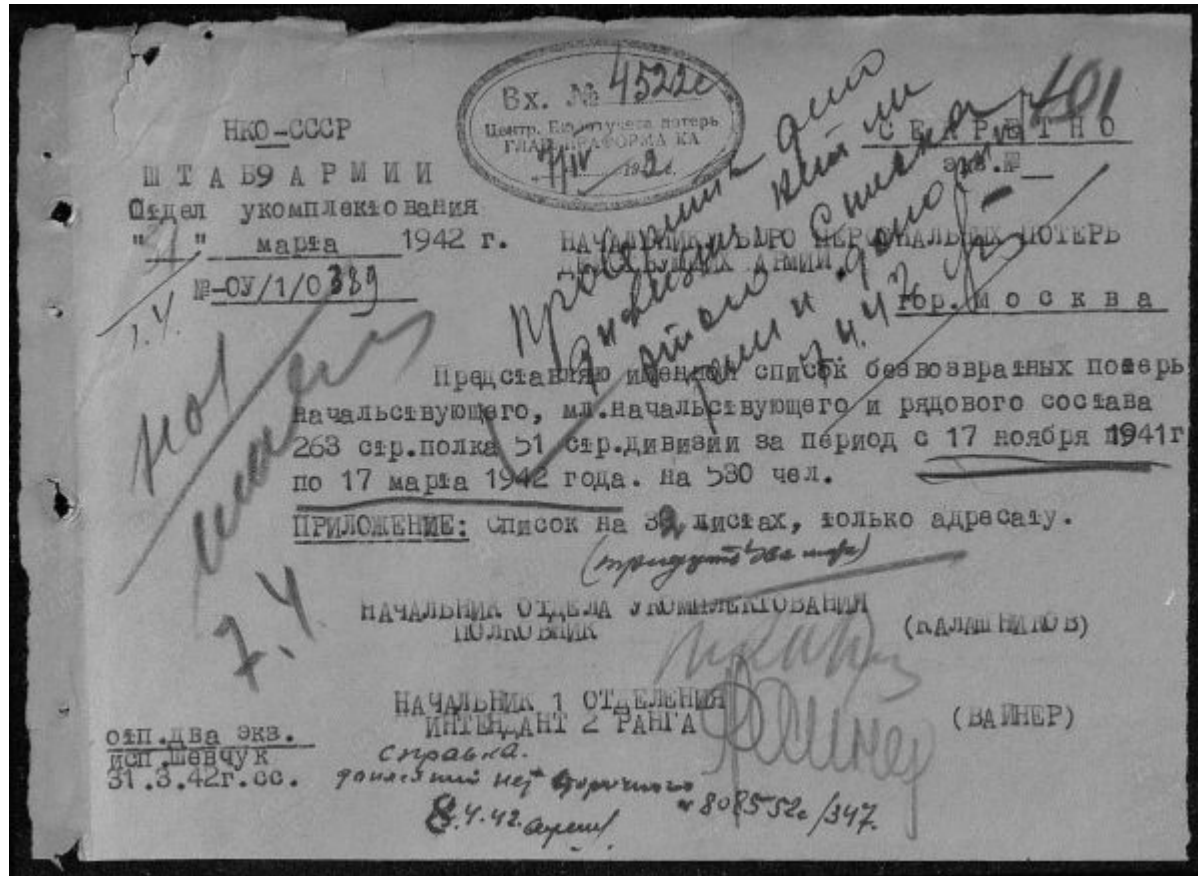 Вх. № 4522с
Центр. Бюро учета потерь
ГЛАВУПРАФОРМА КА
7/IV 1942 г.
401
НКО-СССР
ШТАБ 9 АРМИИ
Отдел укомплектования
" " марта 1942 г.
№-ОУ/1/0389
1.4.
СЕКРЕТНО
экз.№
НАЧАЛЬНИКУ БЮРО ПЕРСОНАЛЬНЫХ ПОТЕРЬ
ДЕЙСТВУЮЩИХ АРМИЙ
гор. МОСКВА
нет ли
этого списка
и доложить
7.4.42
Представляю именной список безвозвратных потерь
начальствующего, мл.начальствующего и рядового состава
263 стр.полка 51 стр.дивизии за период с 17 ноября 1941г
по 17 марта 1942 года. на 530 чел.
ПРИЛОЖЕНИЕ: Список на 32 листах, только адресату.
(тридцать два)
7.4
НАЧАЛЬНИК ОТДЕЛА УКОМПЛЕКТОВАНИЯ
ПОЛКОВНИК (КАЛАШНИКОВ)
НАЧАЛЬНИК 1 ОТДЕЛЕНИЯ
ИНТЕНДАНТ 2 РАНГА (ВАЙНЕР)
отп.два экз.
исп.Шевчук
31.3.42г.сс.
Справка.
нет
8.4.42.
80855 2с/347.